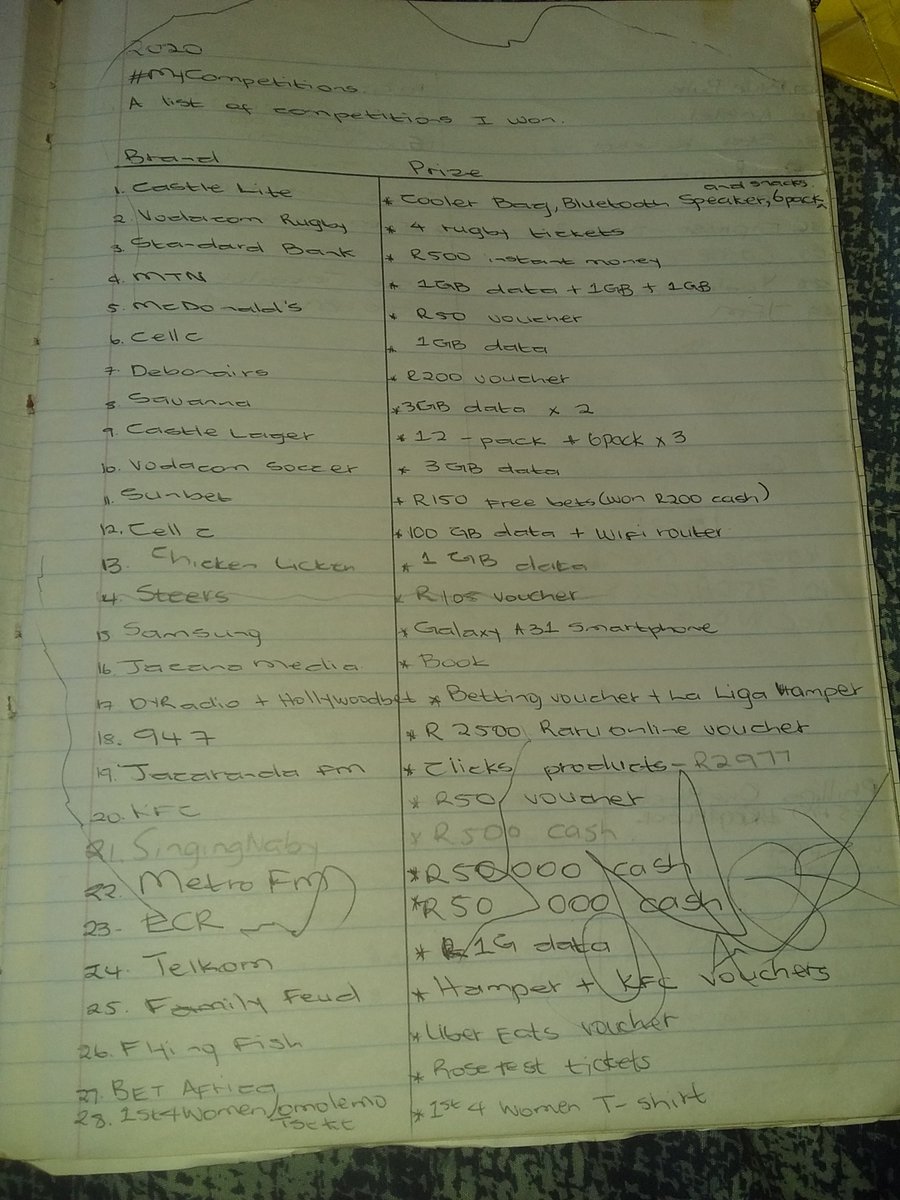 2020
#MyCompetitions.
A list of competitions I won.
Brand Prize
1. Castle Lite * Cooler Bag, Bluetooth Speaker, 6pack and snacks.
2. Vodacom Rugby * 4 rugby tickets
3. Standard Bank * R500 instant money
4. MTN * 1GB data + 1GB + 1GB
5. McDonald's * R50 voucher
6. Cell C * 1GB data
7. Debonairs * R200 voucher
8. Savanna * 3GB data x 2
9. Castle Lager * 12-pack + 6pack x 3
10. Vodacom Soccer * 3GB data
11. Sunbet * R150 free bets (won R200 cash)
12. Cell C * 100 GB data + WiFi router
13. Chicken Licken * 1 GB data
14. Steers * voucher
15 Samsung * Galaxy A31 Smartphone
16. Jacana Media. * Book
17 DYRadio + Hollywoodbet * Betting voucher + La Liga Hamper
18. 947 * R 2500 Raru online voucher
19. Jacaranda fm * Clicks products - R2977
20. KFC * R50 voucher
21. SingingNaby * R500 cash
22. Metro Fm * R50 000 cash
23- ECR * R50 000 cash
24. Telkom * 1G data
25. Family Feud * Hamper + KFC vouchers
26. Flying Fish * Uber Eats voucher
27. BET Africa * Rosefest tickets
28. 1st4Women/Omolemo * 1st 4 Women T-shirt